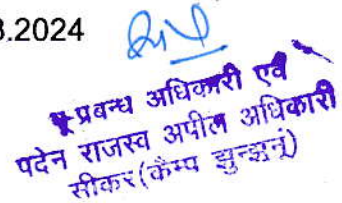 3.2024
भू प्रबन्ध अधिकारी एवं
पदेन राजस्व अपील अधिकारी
सीकर(कैम्प झुन्झुनूं)